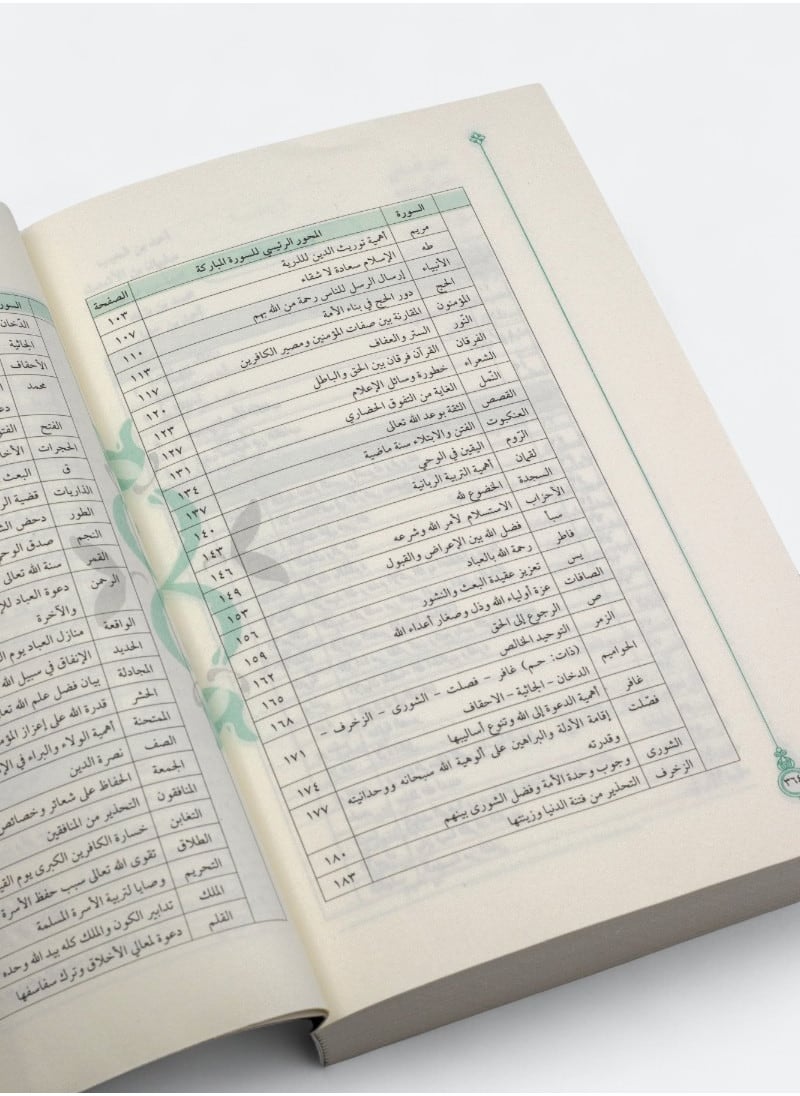 السورة المحور الرئيسي للسورة المباركة الصفحة
مريم أهمية توريث الدين للذرية ١٠٣
طه الإسلام سعادة لا شقاء ١٠٧
الأنبياء إرسال الرسل للناس رحمة من الله بهم ١١٠
الحج دور الحج في بناء الأمة ١١٣
المؤمنون المقارنة بين صفات المؤمنين ومصير الكافرين ١١٧
النّور الستر والعفاف ١٢٠
الفرقان القرآن فرقان بين الحق والباطل ١٢٣
الشعراء خطورة وسائل الإعلام ١٢٧
النّمل الغاية من التفوق الحضاري ١٣١
القصص الثقة بوعد الله تعالى ١٣٤
العنكبوت الفتن والابتلاء سنة ماضية ١٣٧
الرّوم اليقين في الوحي ١٤٠
لقمان أهمية التربية الربانية ١٤٣
السجدة الخضوع لله ١٤٦
الأحزاب الاستسلام لأمر الله وشرعه ١٤٩
سبأ فضل الله بين الإعراض والقبول ١٥٣
فاطر رحمة الله بالعباد ١٥٦
يس تعزيز عقيدة البعث والنشور ١٥٩
الصافات عزة أولياء الله وذل وصغار أعداء الله ١٦٢
ص الرجوع إلى الحق ١٦٥
الزمر التوحيد الخالص ١٦٨
الحواميم (ذات: حم) غافر – فصلت – الشورى – الزخرف –
الدخان – الجاثية – الاحقاف ١٧١
غافر أهمية الدعوة إلى الله وتنوع أساليبها ١٧٤
فصّلت إقامة الأدلة والبراهين على ألوهية الله سبحانه ووحدانيته
وقدرته ١٧٧
الشورى وجوب وحدة الأمة وفضل الشورى بينهم ١٨٠
الزخرف التحذير من فتنة الدنيا وزينتها ١٨٣
٣٦٤
الدّخان
الجاثية
الأحقاف
محمد
الفتح
الحجرات
ق البعث
الذاريات قضية
الطور دحض
النجم صدق
القمر سنة الله تعالى
الرحمن دعوة العباد
والآخرة
الواقعة منازل العباد يوم
الحديد الإنفاق في سبيل الله
المجادلة بيان فضل علم الله
الحشر قدرة الله على إعزاز
الممتحنة أهمية الولاء والبراء في
الصف نصرة الدين
الجمعة الحفاظ على شعائر
المنافقون التحذير من المنافقين
التغابن خسارة الكافرين الكبرى يوم
الطلاق تقوى الله تعالى سبب حفظ الأسرة
التحريم وصايا لتربية الأسرة المسلمة
الملك تدابير الكون والملك كله بيد الله وحده
القلم دعوة لمعالي الأخلاق وترك سفاسفها